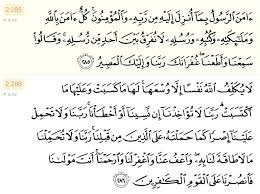 2:285
ءَامَنَ ٱلرَّسُولُ بِمَآ أُنزِلَ إِلَيْهِ مِن رَّبِّهِۦ وَٱلْمُؤْمِنُونَ ۚ كُلٌّ ءَامَنَ بِٱللَّهِ
وَمَلَـٰٓئِكَتِهِۦ وَكُتُبِهِۦ وَرُسُلِهِۦ لَا نُفَرِّقُ بَيْنَ أَحَدٍ مِّن رُّسُلِهِۦ ۚ وَقَالُوا۟
سَمِعْنَا وَأَطَعْنَا ۖ غُفْرَانَكَ رَبَّنَا وَإِلَيْكَ ٱلْمَصِيرُ ٢٨٥
2:286
لَا يُكَلِّفُ ٱللَّهُ نَفْسًا إِلَّا وُسْعَهَا ۚ لَهَا مَا كَسَبَتْ وَعَلَيْهَا مَا
ٱكْتَسَبَتْ ۗ رَبَّنَا لَا تُؤَاخِذْنَآ إِن نَّسِينَآ أَوْ أَخْطَأْنَا ۚ رَبَّنَا وَلَا تَحْمِلْ
عَلَيْنَآ إِصْرًا كَمَا حَمَلْتَهُۥ عَلَى ٱلَّذِينَ مِن قَبْلِنَا ۚ رَبَّنَا وَلَا تُحَمِّلْنَا
مَا لَا طَاقَةَ لَنَا بِهِۦ ۖ وَٱعْفُ عَنَّا وَٱغْفِرْ لَنَا وَٱرْحَمْنَآ ۚ أَنتَ مَوْلَىٰنَا
فَٱنصُرْنَا عَلَى ٱلْقَوْمِ ٱلْكَـٰفِرِينَ ٢٨٦